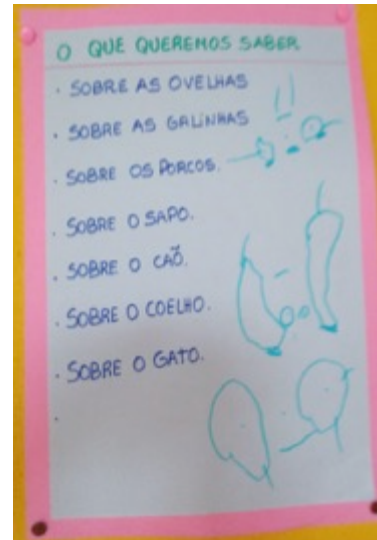 O QUE QUEREMOS SABER
. SOBRE AS OVELHAS
. SOBRE AS GALINHAS
. SOBRE OS PORCOS.
. SOBRE O SAPO.
. SOBRE O CAÕ.
. SOBRE O COELHO.
. SOBRE O GATO.
.